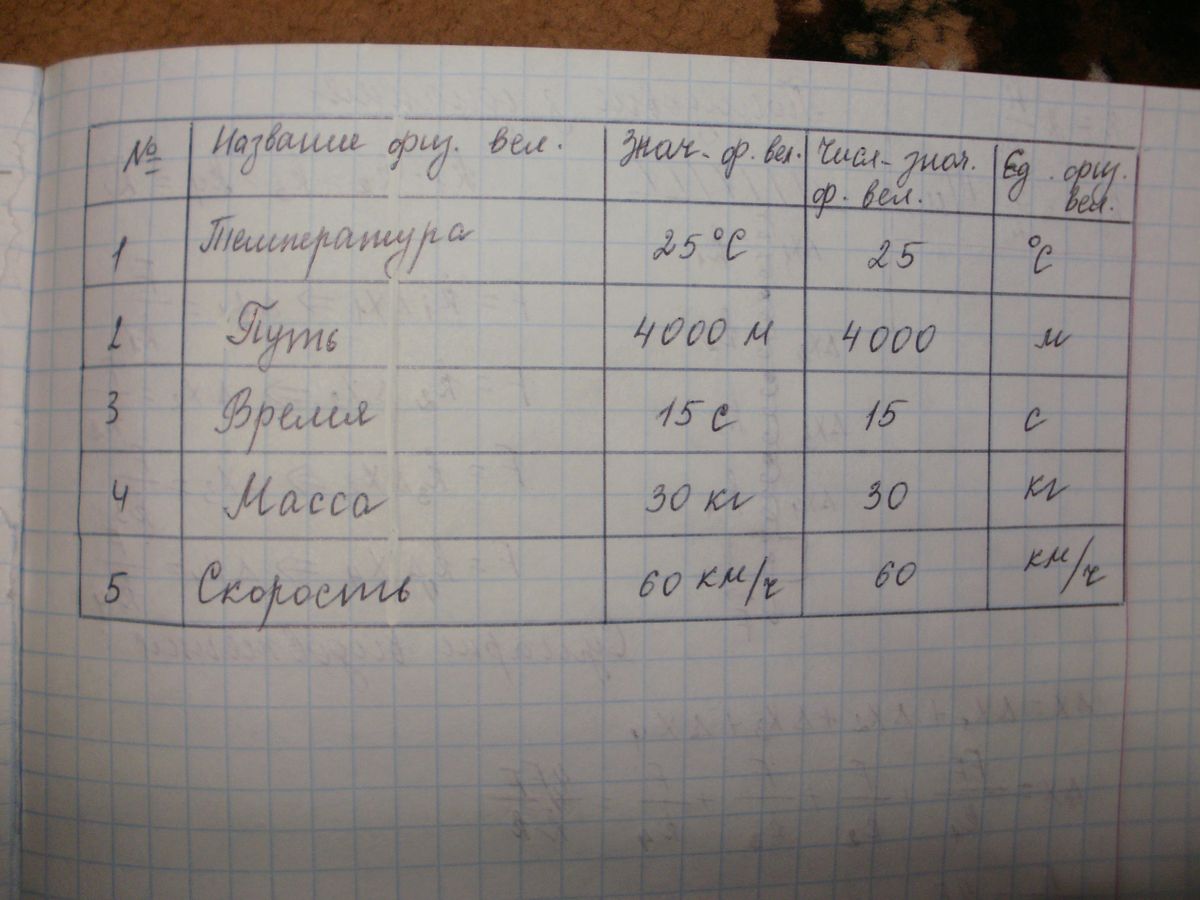 № Название физ. вел. Знач. ф. вел. Числ. знач. ф. вел. Ед. физ. вел.
1 Температура 25°C 25 °C
2 Путь 4000 м 4000 м
3 Время 15 с 15 с
4 Масса 30 кг 30 кг
5 Скорость 60 км/ч 60 км/ч